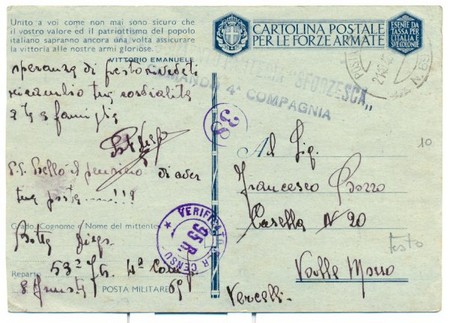 Unito a voi come non mai sono sicuro che
il vostro valore ed il patriottismo del popolo
italiano sapranno ancora una volta assicurare
la vittoria alle nostre armi gloriose.
VITTORIO EMANUELE
speranza di presto rivederti
ricambio tue cordialità
a te e famiglia
P.S. Bello il pensiero di aver
tua posta
Grado, Cognome e Nome del mittente
Botta Diego
Reparto 53° Ftr. 4ª Comp.
POSTA MILITARE 69
CARTOLINA POSTALE
PER LE FORZE ARMATE
ESENTE DA
TASSA PER
L'ITALIA E
SUE COLONIE
"SFORZESCA"
COMANDO 4ª COMPAGNIA
38
10
Al Sig.
Francesco Bozzo
Casella N 20
testo
Valle Mosso
Vercelli
VERIFICATO PER CENSURA
95 R.